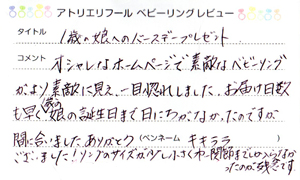 アトリエリフール ベビーリングレビュー
タイトル
1歳の娘へのバースデープレゼント
コメント
オシャレなホームページで素敵なベビーリング
がより素敵に見え、一目惚れしました。お届け日数
も早く娘の誕生日まで日にちがなかったのですが
1歳の
間に合いました。ありがとう (ペンネーム キキララ
ございました!リングのサイズが少し小さくて関節までしか入らなか
ったのが残念です